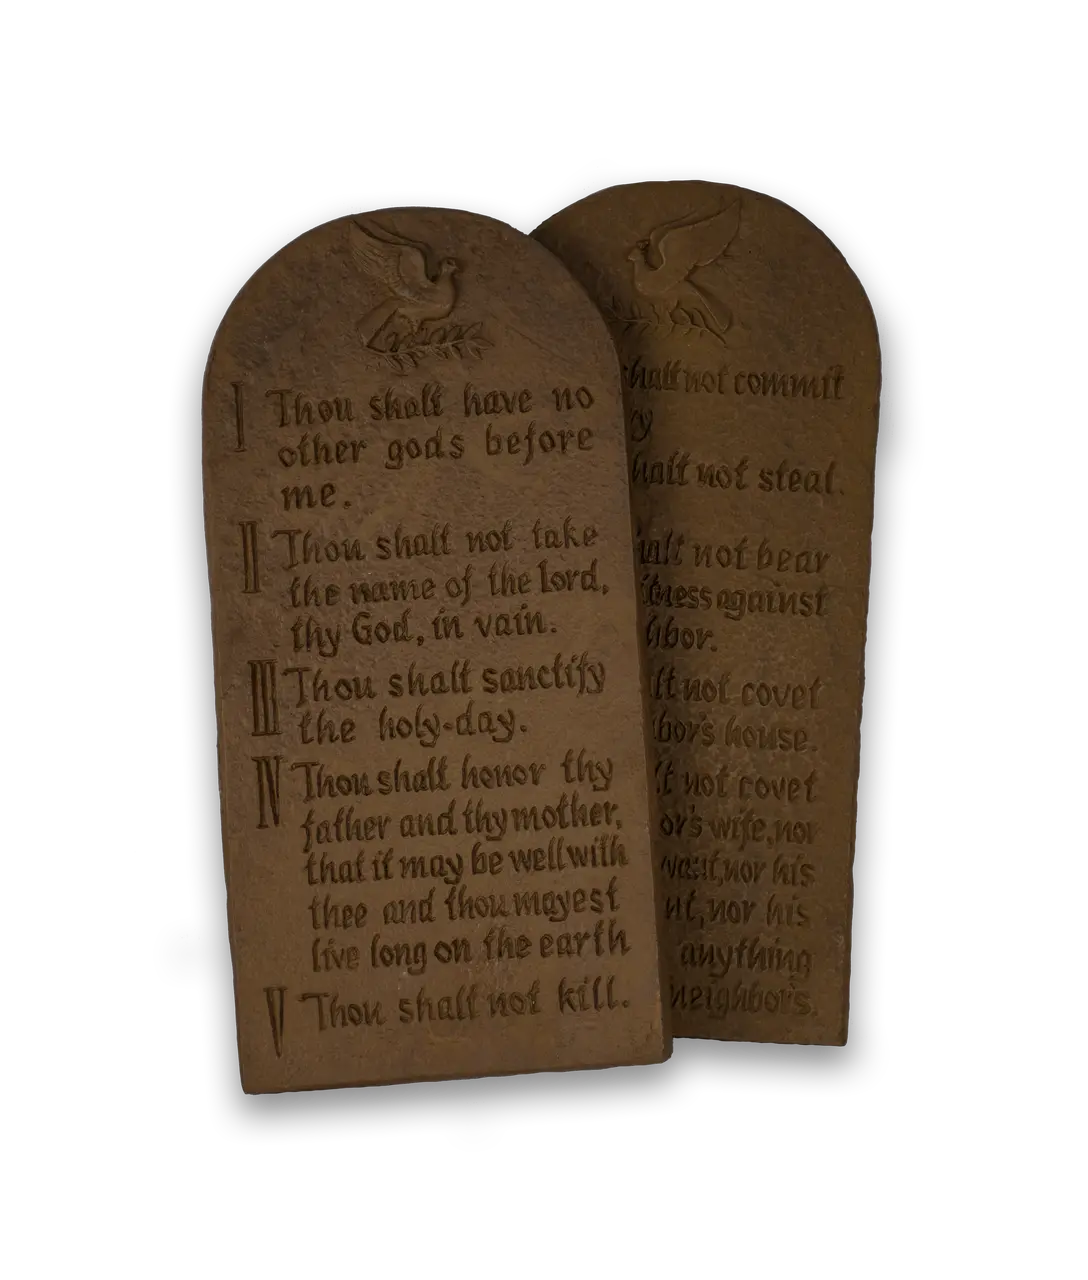 I Thou shalt have no
other gods before
me.
II Thou shalt not take
the name of the Lord,
thy God, in vain.
III Thou shalt sanctify
the holy-day.
IV Thou shalt honor thy
father and thy mother,
that it may be well with
thee and thou mayest
live long on the earth
V Thou shalt not kill.
shalt not commit
ry
halt not steal.
halt not bear
itness against
hbor.
lt not covet
bor's house.
t not covet
or's wife, nor
vant, nor his
nt, nor his
anything
neighbor's.